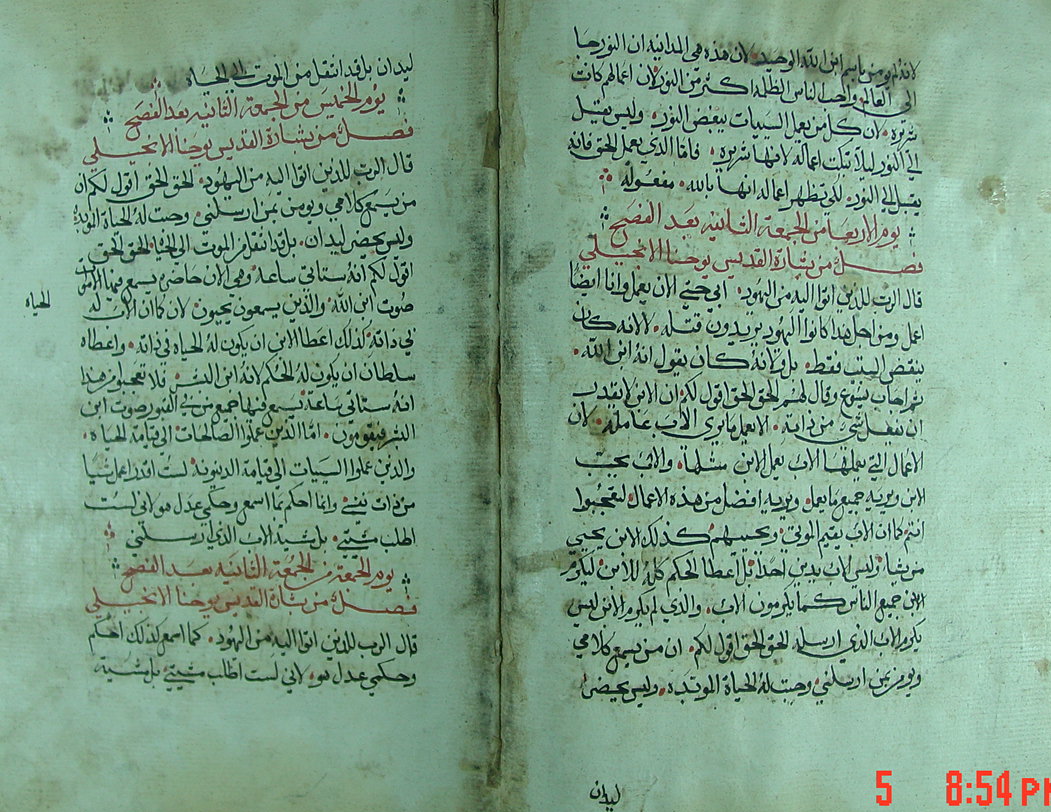 لانه لم يومن باسم ابن الله الوحيد لان هذه هي المداينه ان النور جا
الى العالم واحب الناس الظلمه اكثر من النور لان اعمالهم كانت
شريره لان كل من يعمل السيات يبغض النور وليس يقبل
الى النور ليلا تبكت اعماله لانها شريره فاما الذي يعمل الحق فانه
يقبل الى النور لكي تظهر اعماله انها بالله مفعوله
يوم الاربعا من الجمعة الثانيه بعد الفصح
فصل من بشارة القديس يوحنا الانجيلي
قال الرب للذين اتوا اليه من اليهود ابي حتى الان يعمل وانا ايضا
اعمل ومن اجل هذا كانوا اليهود يريدون قتله لانه كان
ينقض السبت فقط بل ولانه كان يقول انه ابن الله
ثم اجاب يسوع وقال لهم الحق الحق اقول لكم ان الابن لا يقدر
ان يفعل شي من ذاته الا يعمل ما يرى الاب عامله لان
الاعمال التي يعملها الاب يعمل الابن مثلها والاب يحب
الابن ويريه جميع ما يعمل ويريه افضل من هذه الاعمال لتعجبوا
انتم كما ان الاب يقيم الموتى ويحييهم كذلك الابن يحيي
من يشا وليس الاب يدين احدا بل اعطا الحكم كله للابن ليكرم
الابن جميع الناس كما يكرمون الاب والذي لم يكرم الابن ليس
يكرم الاب الذي ارسله الحق الحق اقول لكم ان من يسمع كلامي
ويومن بمن ارسلني وجبت له الحياة الموبده وليس يحضر
ليدان
ليدان بل قد انتقل من الموت الى الحياه
يوم الخميس من الجمعة الثانيه بعد الفصح
فصل من بشارة القديس يوحنا الانجيلي
قال الرب للذين اتوا اليه من اليهود الحق الحق اقول لكم ان
من يسمع كلامي ويومن بمن ارسلني وجبت له الحياة الموبده
وليس يحضر ليدان بل قد انتقل من الموت الى الحياه الحق الحق
اقول لكم انه ستاتي ساعه وهي الان حاضره يسمع فيها الاموات
صوت ابن الله والذين يسمعون يحيون لان كما ان الاب له
الحياه
في ذاته كذلك اعطا الابن ان يكون له الحياه في ذاته واعطاه
سلطان ان يكون له الحكم لانه ابن البشر فلا تعجبوا من هذا
انه ستاتي ساعه يسمع فيها جميع من في القبور صوت ابن
البشر فيقومون اما الذين عملوا الصالحات الى قيامة الحياه
والذين عملوا السيات الى قيامة الدينونه لست اقدر اعمل شيا
من ذات نفسي وانما احكم بما اسمع وحكمي عدل هو لاني لست
اطلب مشيتي بل مشية الاب الذي ارسلني
يوم الجمعة من الجمعة الثانيه بعد الفصح
فصل من بشارة القديس يوحنا الانجيلي
قال الرب للذين اتوا اليه من اليهود كما اسمع كذلك احكم
وحكمي عدل هو لاني لست اطلب مشيتي بل مشية
5 8:54 PM